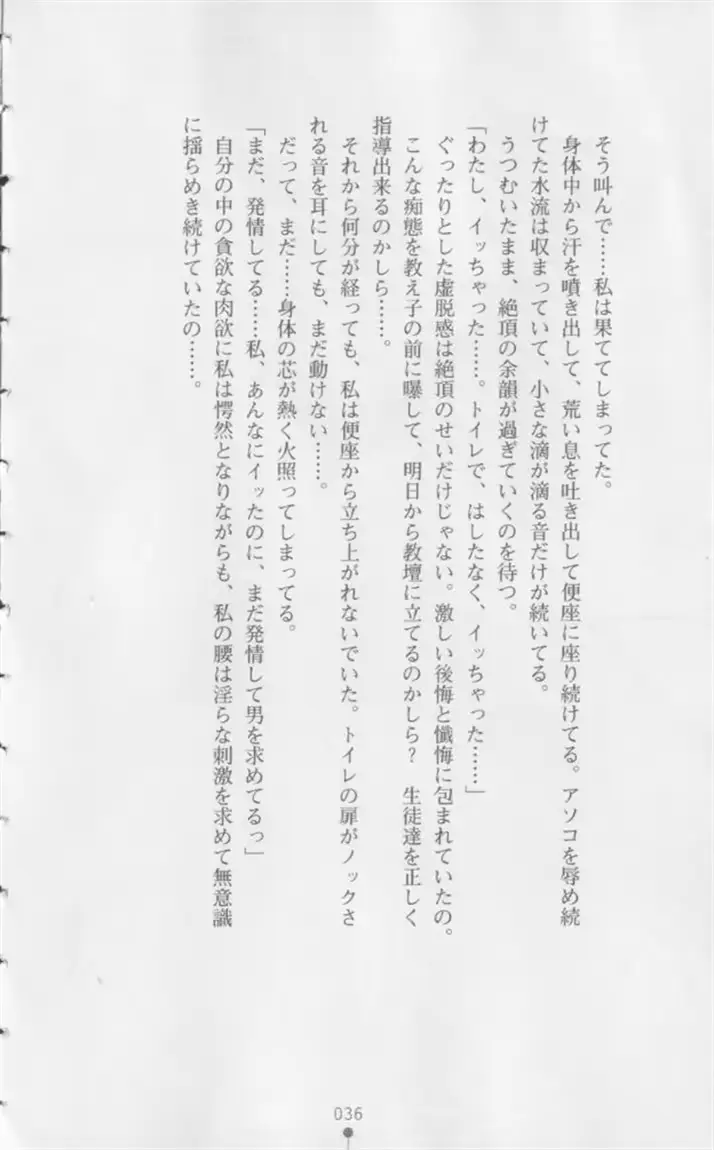 そう叫んで……私は果ててしまってた。
身体中から汗を噴き出して、荒い息を吐き出して便座に座り続けてる。アソコを辱め続
けてた水流は収まっていて、小さな滴が滴る音だけが続いてる。
うつむいたまま、絶頂の余韻が過ぎていくのを待つ。
「わたし、イッちゃった……。トイレで、はしたなく、イッちゃった……」
ぐったりとした虚脱感は絶頂のせいだけじゃない。激しい後悔と懺悔に包まれていたの。
こんな痴態を教え子の前に曝して、明日から教壇に立てるのかしら？　生徒達を正しく
指導出来るのかしら……。
それから何分が経っても、私は便座から立ち上がれないでいた。トイレの扉がノックさ
れる音を耳にしても、まだ動けない……。
だって、まだ……身体の芯が熱く火照ってしまってる。
「まだ、発情してる……私、あんなにイッたのに、まだ発情して男を求めてるっ」
自分の中の貪欲な肉欲に私は愕然となりながらも、私の腰は淫らな刺激を求めて無意識
に揺らめき続けていたの……。
036